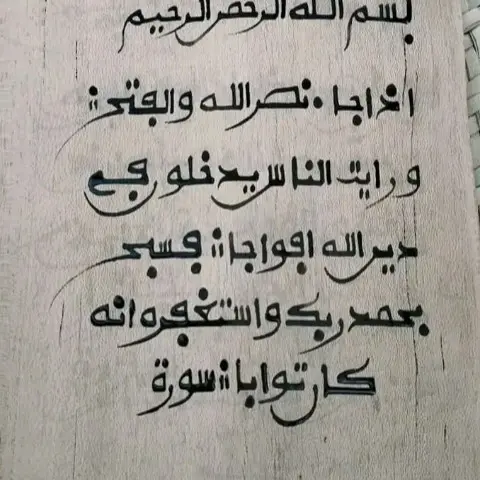 بسم الله الرحمن الرحيم
اذا جاء نصر الله والفتح ⁝
ورايت الناس يدخلون في
دين الله افواجا ⁝ فسبح
بحمد ربك واستغفره انه
كان توابا ⁝ سورة